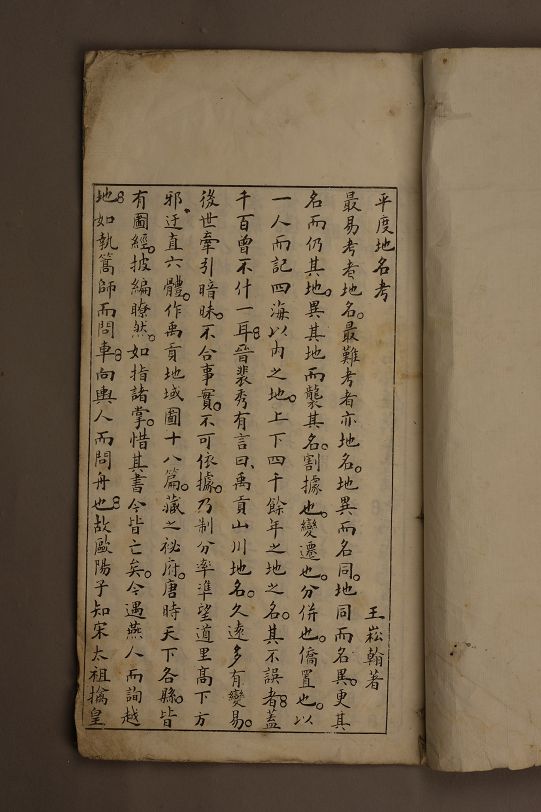 平度地名考
王崧翰著
最易考者地名。最難考者亦地名。地異而名同。地同而名異。更其
名而仍其地。異其地而襲其名。割據也。變遷也。分併也。僑置也。以
一人而記四海以內之地。上下四千餘年之地之名。其不誤者蓋
千百曾不什一耳。晉裴秀有言曰、禹貢山川地名。久遠多有變易。
後世牽引暗昧。不合事實。不可依據。乃制分率準望道里高下方
邪迂直六體。作禹貢地域圖十八篇。藏之祕府。唐時天下各縣。皆
有圖經。披編瞭然。如指諸掌。惜其書今皆亡矣。今遇燕人而詢越
地。如執篙師而問車。向輿人而問舟也。故歐陽子知宋太祖擒皇